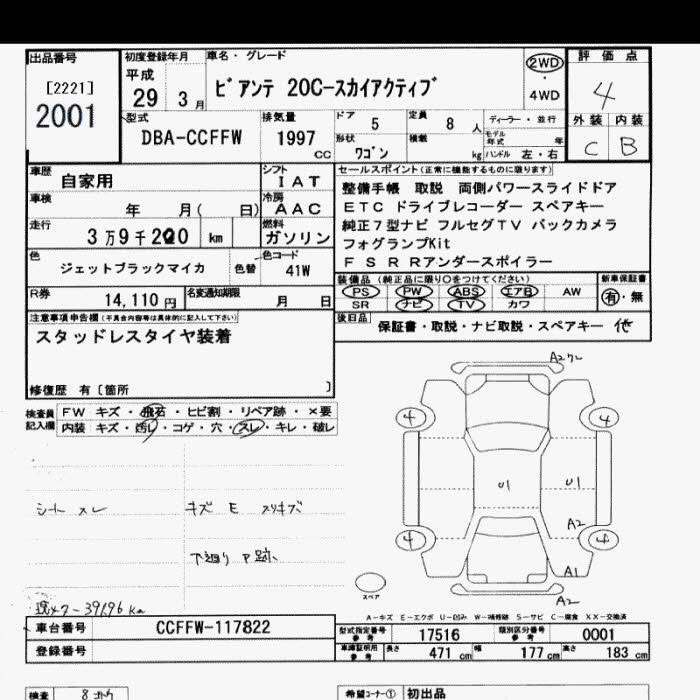 出品番号
[2221]
2001
初度登録年月
平成
29 3月
車名・グレード
ビアンテ 20C-スカイアクティブ
2WD
・
4WD
評価点
4
外装 内装
C B
型式
DBA-CCFFW
排気量
1997
CC
ドア 5
定員 8 人
形状
ワゴン
積載
kg
ディーラー・並行
モデル年式 年
ハンドル 左・右
車歴
自家用
車検
年 月( 日)
走行
3万9千200 km
シフト
IAT
冷房
AAC
燃料
ガソリン
色
ジェットブラックマイカ
色替
色コード
41W
R券
14,110 円
名変通知期限
月 日
セールスポイント(正常に機能するものに限ります)
整備手帳 取説 両側パワースライドドア
ETC ドライブレコーダー スペアキー
純正7型ナビ フルセグTV バックカメラ
フォグランプKit
FS RRアンダースポイラー
装備品(純正品に限り○をつけてください)
PS PW ABS エアB AW
SR ナビ TV カワ
新車保証書
有・無
後日品
保証書・取説・ナビ取説・スペアキー 他
注意事項申告欄(不具合内容等は具体的に記入して下さい)
スタッドレスタイヤ装着
修復歴 有〔箇所 〕
検査員
記入欄
FW キズ・飛石・ヒビ割・リペア跡・×要
内装 キズ・汚レ・コゲ・穴・スレ・キレ・破レ
シート スレ
キズ E スリキズ
下廻り ア跡
現メター39196 Km
A2
4
4
U1
U1
A2
4
4
A1
A2
スペア
A-キズ E-エクボ U-凹み W-補修跡 S-サビ C-腐食 XX-交換済
車台番号
CCFFW-117822
登録番号
型式指定番号
参考
17516
類別区分番号
参考
0001
車庫証明用
参考
長さ 471 cm
幅 177 cm
高さ 183 cm
検査
希望コーナー① 初出品